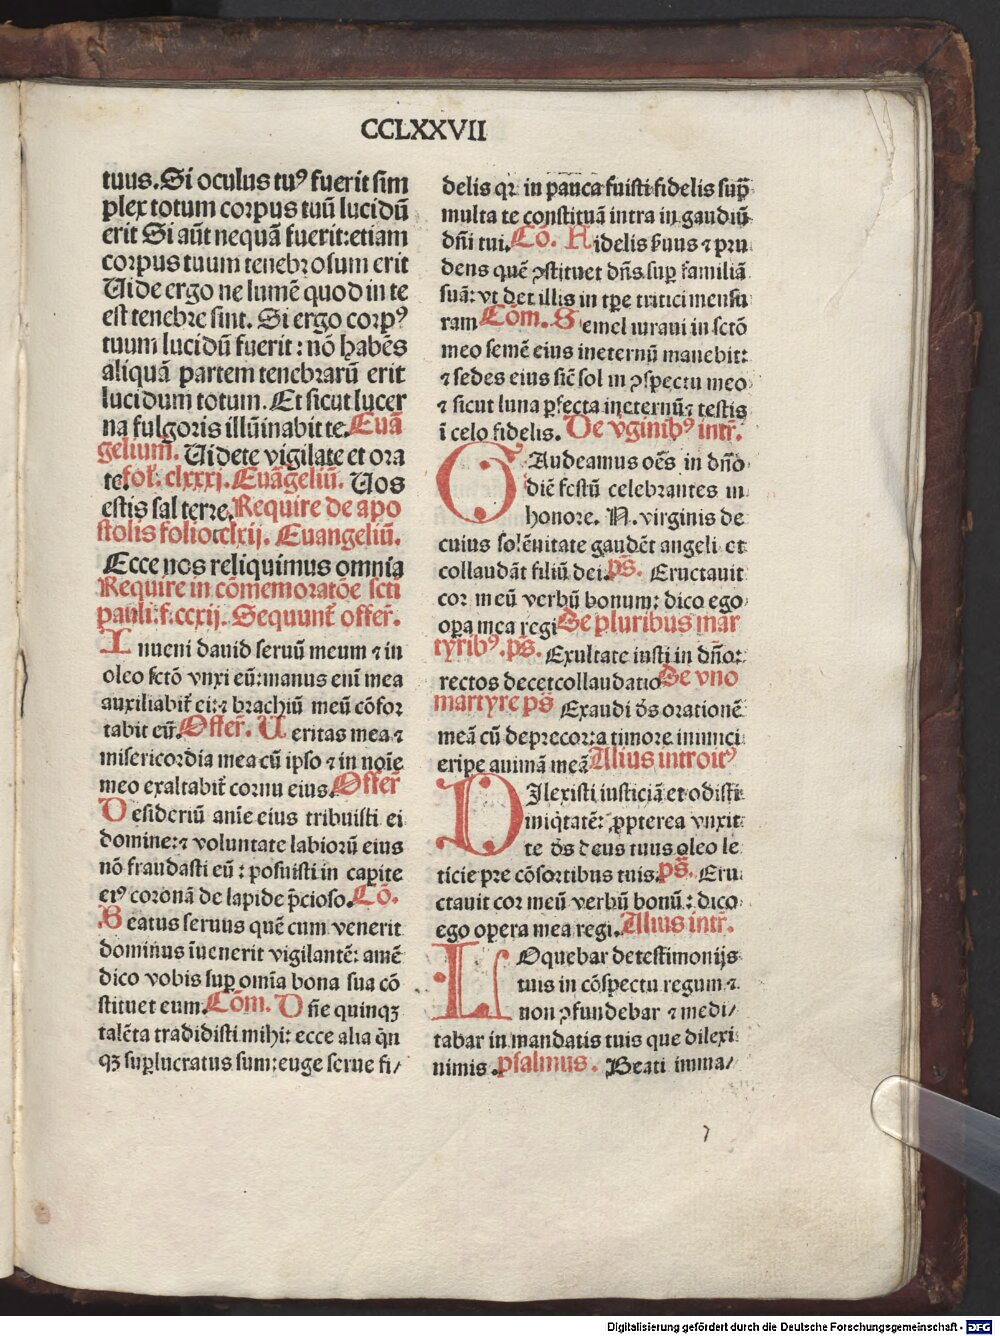 CCLXXVII
tuus. Si oculus tuꝰ fuerit sim
plex totum corpus tuū lucidū
erit Si aūt nequā fuerit: etiam
corpus tuum tenebrosum erit
Uide ergo ne lumē quod in te
est tenebre sint. Si ergo corpꝰ
tuum lucidū fuerit: nō habēs
aliquā partem tenebrarū erit
lucidum totum. Et sicut lucer
na fulgoris illūinabit te. Euā
gelium. Uidete vigilate et ora
te fol. clxxxj. Euāgeliū. Uos
estis sal terre. Require de apo
stolis folio cclxij. Euangeliū.
Ecce nos reliquimus omnia
Require in cōmemoratōe scti
pauli: f. ccxij. Sequunt̄ offer̄.
Inueni dauid seruū meum ⁊ in
oleo sctō vnxi eū: manus eni mea
auxiliabit̄ ei: ⁊ brachiū meū cōfor
tabit eū. Offer̄. Ueritas mea ⁊
misericordia mea cū ipso ⁊ in noīe
meo exaltabit̄ cornu eius. Offer̄
Desideriū anīe eius tribuisti ei
domine: ⁊ voluntate labiorū eius
nō fraudasti eū: posuisti in capite
eiꝰ coronā de lapide p̄cioso. Cō.
Beatus seruus quē cum venerit
dominus īuenerit vigilantē: amē
dico vobis suꝑ omīa bona sua cō
stituet eum. Cōm. Dn̄e quinqꝫ
talēta tradidisti mihi: ecce alia q̄n
qꝫ suꝑlucratus sum: euge serue fi/
delis qꝛ in pauca fuisti fidelis suꝑ
multa te constituā intra in gaudiū
dn̄i tui. Cō. Fidelis s̄uus ⁊ pru
dens quē ꝯstituet dn̄s suꝑ familiā
suā: vt det illis in tꝑe tritici mensu
ram Cōm. Semel iuraui in sctō
meo semē eius in eternū manebit:
⁊ sedes eius sic̄ sol in ꝯspectu meo
⁊ sicut luna ꝑfecta in eternū: ⁊ testis
ī celo fidelis. De v̄ginibꝰ intr̄.
GAudeamus oēs in dn̄o
diē festū celebrantes in
honore. N. virginis de
cuius solēnitate gaudēt angeli et
collaudāt filiū dei. ps̄. Eructauit
cor meū verbū bonum: dico ego
opera mea regi De pluribus mar
tyribꝰ. ps̄. Exultate iusti in dn̄o:
rectos decet collaudatio De vno
martyre ps̄ Exaudi ds̄ orationē
meā cū deprecor: a timore inimici
eripe animā meā Alius introitꝰ
DIlexisti iusticiā et odisti
iniq̇tatē: ꝓpterea vnxit
te ds̄ deus tuus oleo le
ticie pre cōsortibus tuis. ps̄. Eru
ctauit cor meū verbū bonū: dico
ego opera mea regi. Alius intr̄.
LOquebar de testimonijs
tuis in cōspectu regum ⁊
non ꝯfundebar ⁊ medi/
tabar in mandatis tuis que dilexi
nimis. psalmus. Beati imma/
Digitalisierung gefördert durch die Deutsche Forschungsgemeinschaft - DFG